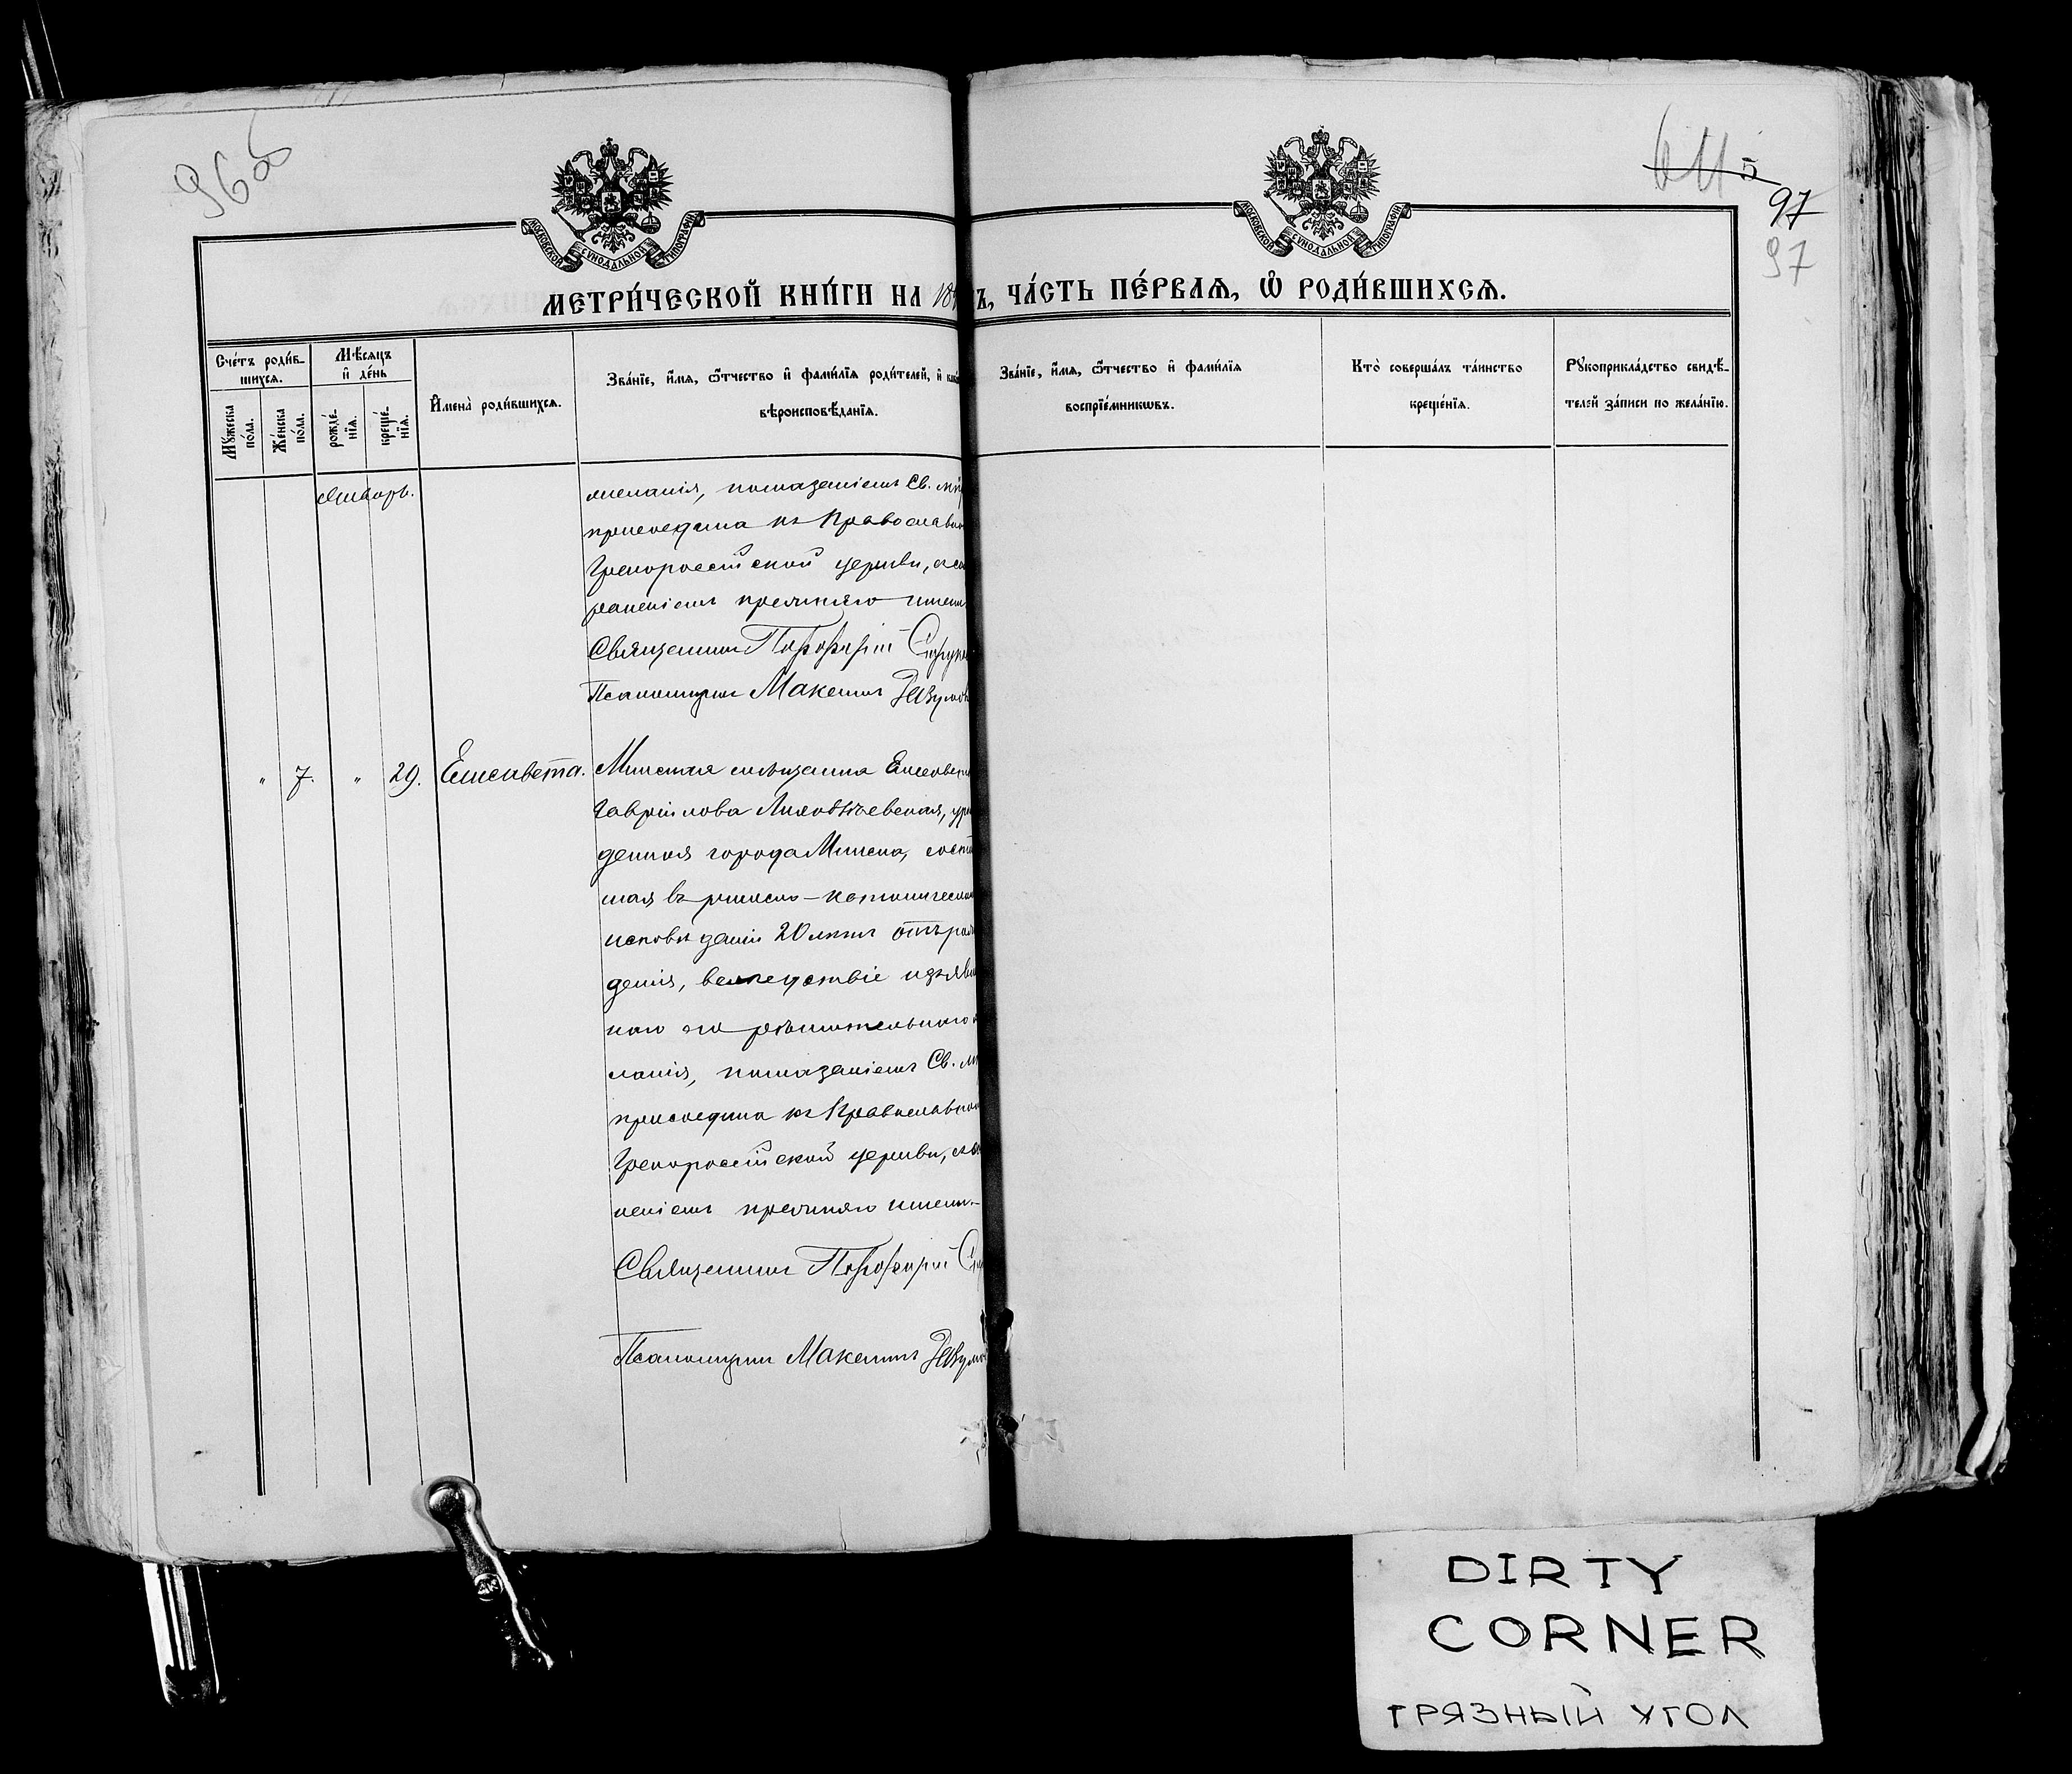 96об
611 5
97
97
МОСКОВСКОЙ СѴНОДАЛЬНОЙ ТИПОГРАФІИ
МОСКОВСКОЙ СѴНОДАЛЬНОЙ ТИПОГРАФІИ
МЕТРИ́ЧЕСКОЙ КНИ́ГИ НА 18 Ъ, ЧА́СТЬ ПЕ́РВАѦ, Ѡ҆ РОДИ́ВШИХСѦ.
Сче́тъ роди́в-
шихсѧ.
Мѣ́сѧцъ
и҆ де́нь
Мꙋ́жеска
по́ла.
Же́нска
по́ла.
рожде́-
нїѧ.
креще́-
нїѧ.
И҆мена̀ роди́вшихсѧ.
Зва́нїе, и҆́мѧ, ѻ҆́тчество и҆ фами́лїѧ роди́телей, и҆
вѣроисповѣ́данїѧ.
Зва́нїе, и҆́мѧ, ѻ҆́тчество и҆ фами́лїѧ
воспрїе́мникѡвъ.
Кто̀ соверша́лъ та́инство
креще́нїѧ.
Рꙋкоприкла́дство свидѣ́-
телей за́писи по жела́нїю.
Январь.
желанія, помазаніемъ Св. мѵ
присоединена къ Православно
Грекороссійской церкви, съ со
раненіемъ прежняго имени
Священникъ Порфирій
Псаломщикъ Максимъ
" 7. " 29. Елисавета. Минская мѣщанка Елисавет
Гавріилова, уро
денная города Минска, состо
шая въ римско-католическом
исповѣданіи 20 лѣтъ отъ рож
денія, вслѣдствіе изъявлен
наго ею рѣшительнаго
ланія, помазаніемъ Св. мѵ
присоединена къ Православно
Грекороссійской церкви, съ сох
неніемъ прежняго имени.
Священникъ Порфирій
Псаломщикъ Максимъ
DIRTY
CORNER
ГРЯЗНЫЙ УГОЛ